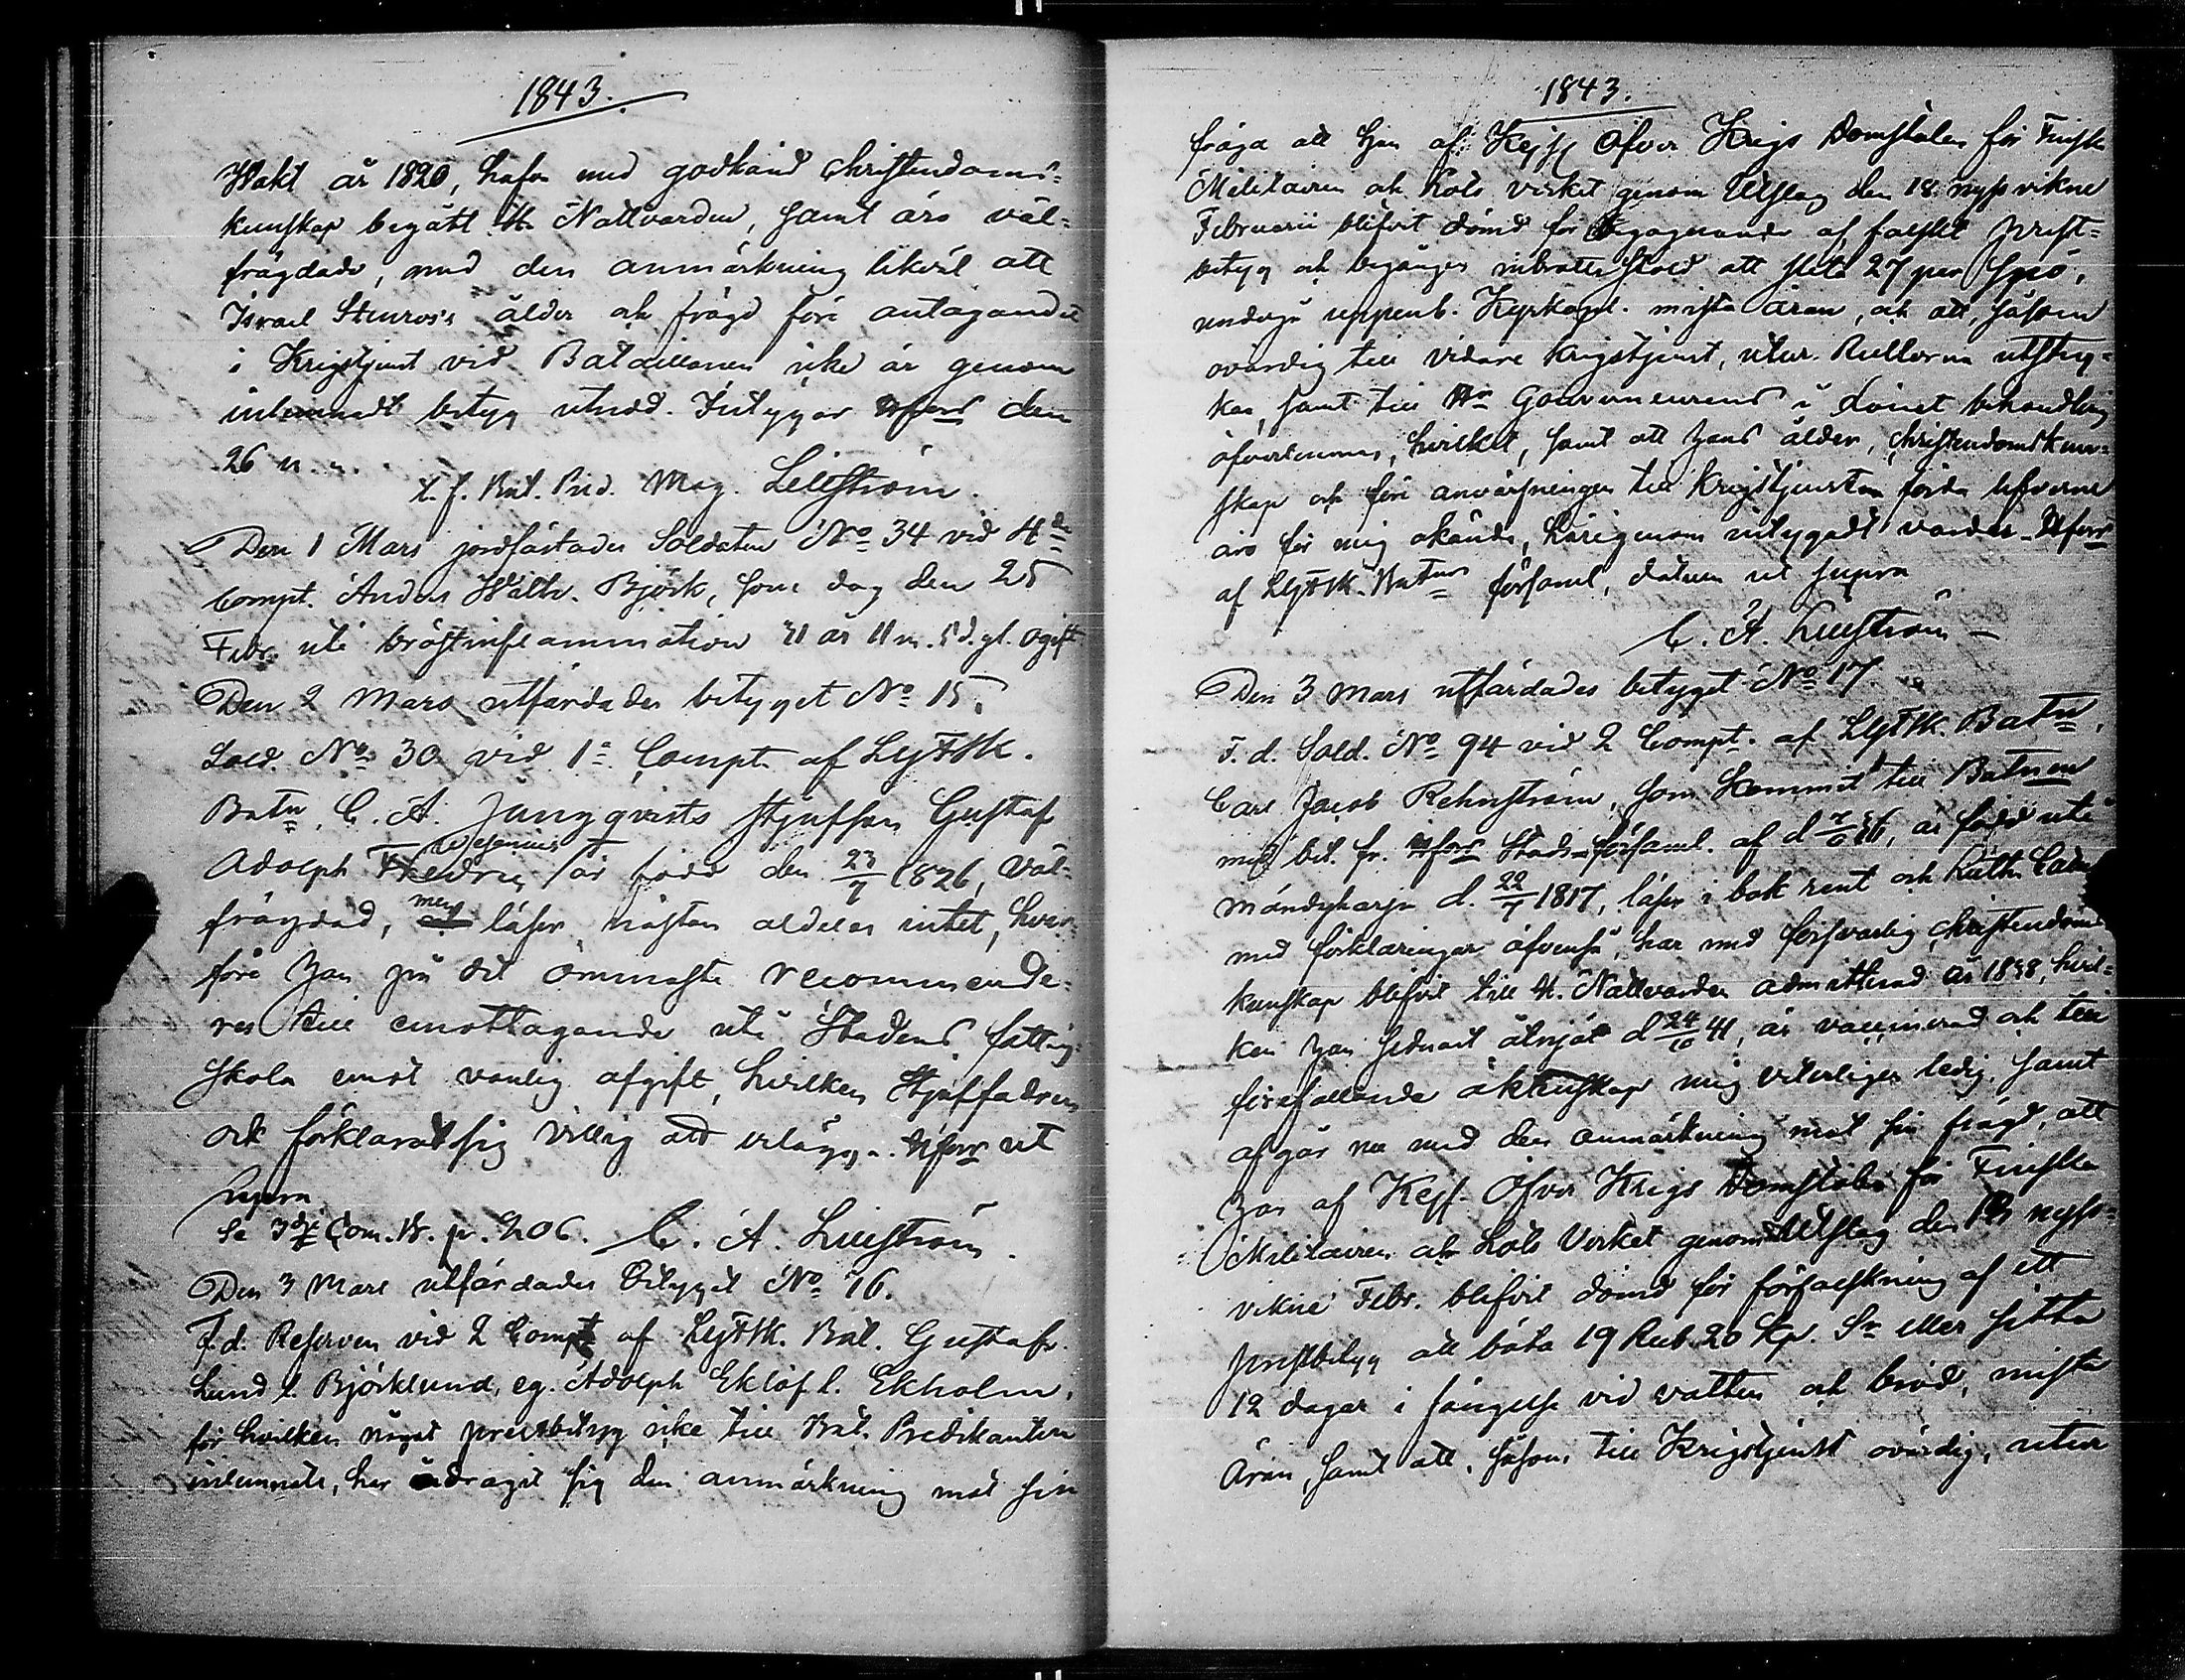 1843.
Wakt år 1820, hafva med godkänd Christendoms-
kunskap begått H. Nattvarden, samt äro väl-
frägdade, med den anmärkning likväl att
Israel Stenros's ålder och frägd före antagandet
i Krigstjenst vid Bataillonen icke är genom
inlemnadt betyg utredd. Intygar Hfors den
26
t. f. Bat. Pred. Mag. Lillström.
Den 1 Mars jordfästades Soldaten No 34 vid 4de
Compt. Anders Walbr. Björk, som dog den 25
Febr. uti bröstinflammation 31 år 11 m. 5 d. gl. ogift
Den 2 Mars utfärdades betyget No 15.
Sold. No 30 vid 1a Compt. af LgFSk.
Batn, C. A. Jungqvists styfson Gustaf
Wesenius
Adolph Fredric är född den 23/7 1826, väl-
frägdad, men läser nästan aldeles intet, hvar-
före han på det ömmaste recommende-
res till emottagande uti Stadens fattig-
skola emot vanlig afgift, hvilken Styffadren
ock förklarat sig villig att erlägga. Hfors ut
supra
Se 3dje Com. B. p. 206. C. A. Lillström.
Den 3 Mars utfärdades Betyget No 16.
F. d. Reserven vid 2 Compt af LgFSk. Bat. Gustaf
Lund l. Björklund, eg. Adolph Eklöf l. Ekholm,
för hvilken något prestbetyg icke till Bat. Predikanten
inlemnats, har ådragit sig den anmärkning mot sin
1843.
frägd att han af Kejs. Öfver Krigs Domstolen för Finska
Militairen och Lots verket genom Utslag den 18 nyss vikne
Februarii blifvit dömd för begagnande af falskt prest-
betyg och begången inbrotts stöld att slita 27 par Spö,
undergå uppenb. Kyrkopl. mista äran, och att, såsom
ovärdig till vidare krigstjenst, utur Rullorna utstry-
kas, samt till Hr Gouverneurens i länet behandling
öfverlemnas, hvilket, samt att hans ålder, christendomskun-
skap och före anvärfningen till krigstjensten förda lefverne
äro för mig okände, härigenom intygadt varder. Hfors
af LgFSk. Batns församl., datum ut supra
C. A. Lillström
Den 3 Mars utfärdades betyget No 17
F. d. Sold. No 94 vid 2 Compt. af LgFSk. Batn,
Carl Jacob Rehnström, som kommit till Batnen
med bet. fr. Hfors Stads-församl. af d 36, är född uti
Mäntyharju d. 22/7 1817, läser i bok rent och Luth. Cath.
med förklaringar äfvenså, har med försvarlig christendoms
kunskap blifvit till H. Nattvarden admitterad år 1838, hvil-
ken han sednast åtnjöt d 24/10 41, är vaccinerad och till
förefallande äktenskap mig veterligen ledig, samt
afgår nu med den anmärkning mot sin frägd, att
han af Kejs. Öfver Krigs Domstolen för Finska
Militairen och Lots Verket genom Utslag den 18 nyss-
vikne Febr. blifvit dömd för förfalskning af ett
prestbetyg att böta 19 Rub. 20 kp. Sr eller sitta
12 dagar i fängelse vid vatten och bröd, mista
äran, samt att, såsom till Krigstjenst ovärdig, utur